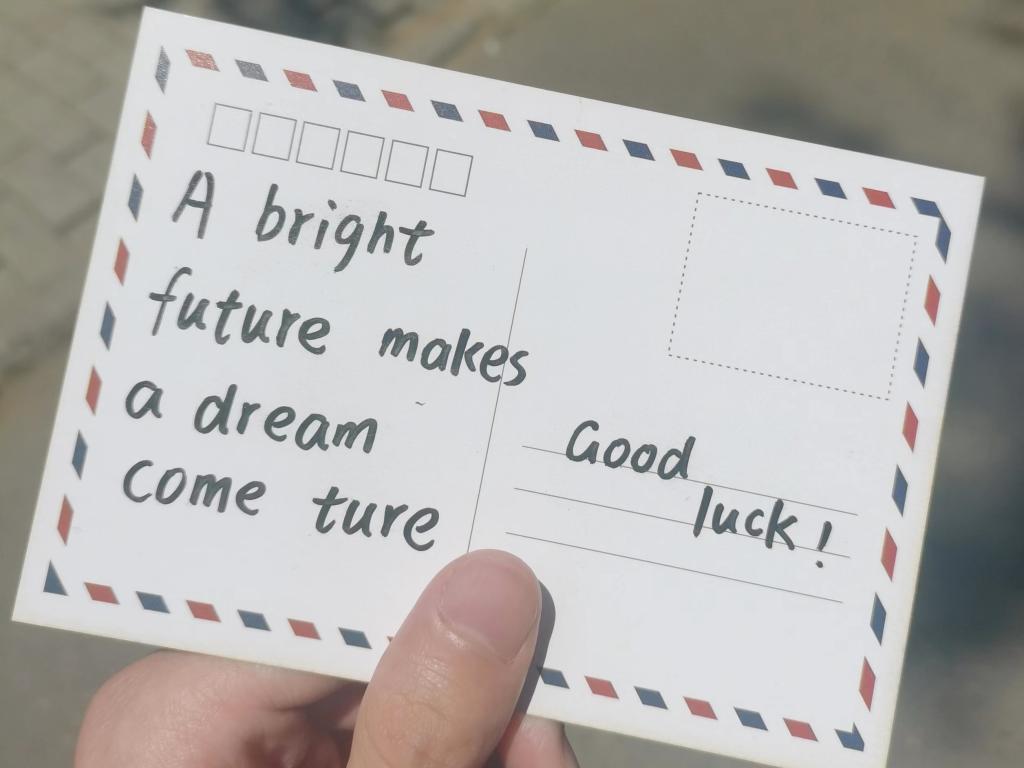 A bright
future makes
a dream
come ture
Good
luck!